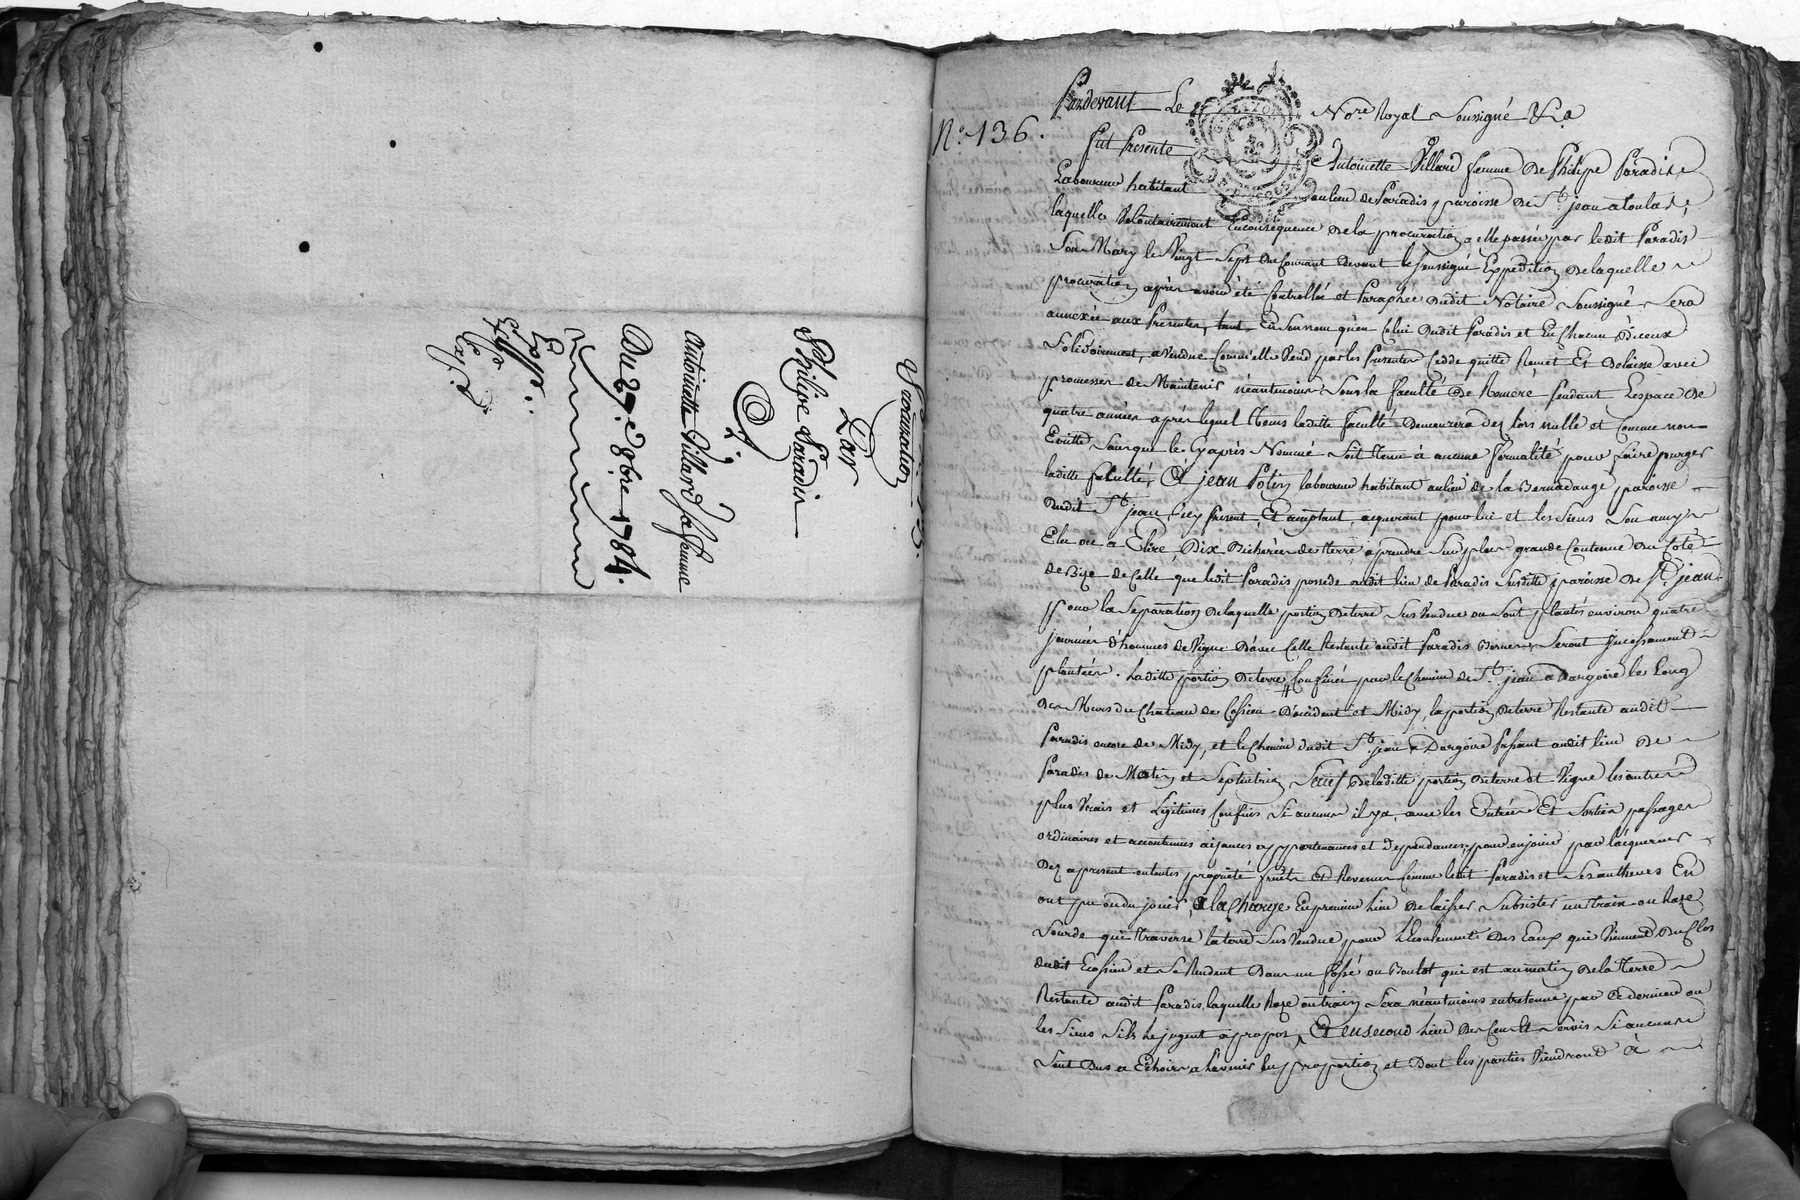 Procuration
Par
Philipe Paradis
A
Antoinette Villard sa femme
Du 27. 8bre 1784.
Exp.
Exp.
N.o 136.
Pardevant Le Nore. Royal Soussigné &a
fut Presente Antoinette Villard femme De Philipe Paradis
Laboureur habitant au lieu de Paradis paroisse de St. jean a toulas,
laquelle Volontairement En consequence De la procuration a elle passée par ledit Paradis
Son Mary le Vingt Sept Du Courant Devant le soussigné Expedition De laquelle
procuration après avoir été Controllée et Paraphée Dudit Notaire Soussigné Sera
annexée aux Presentes, tant En Son nom qu'en Celui Dudit Paradis et En Chacun D'iceux
Solidairement, a Vendue Comm'elle Vend par les Presentes Cedde quitte Remet Et Delaisse avec
promesses de Maintenir néantmoins Sous la faculté De Remere pendant L'espace De
quatre années après lequel tems laditte faculté Demeurera dez lors nulle et Comme non
Ecritte Sans que le Cy après Nommé Soit tenu à aucune formalité pour faire purger
laditte faculté, à jean Poley laboureur habitant au lieu de la Bernadange paroisse
Dudit St. jean, icy present Et acceptant, acquerant pour lui et les Siens Son amy
Elu ou a Elire, Dix Bicherées de terre à prendre Sur plus grande Contenue Du Coté
de Bize de Celle que ledit Paradis possede audit lieu de Paradis Susditte paroisse de St. jean
pour la Separation De laquelle portion De terre Sus Vendue ou Sont plantés environ quatre
journées d'hommes de Vigne D'avec Celle Restante audit Paradis Bornes Seront Incessament
plantées. Laditte portion De terre Confinée par le Chemin de St. jean a Dargoire le Long
Des Murs du Chateau de Cossieu D'occident et Midy, la portion De terre Restante audit
Paradis encore de Midy, et le Chemin dudit St. jean a Dargoire passant audit lieu De
Paradis de Matin et Septentrion Sauf De laditte portion De terre et Vigne les autres
plus Vrais et Legitimes Confins Si aucuns il y a, avec les Entrées Et Sorties passages
ordinaires et accoutumés aisances appartenances et Dependances, pour en jouir par l'acquereur
Dez a present en toutes proprieté fruits Et Revenus Comme ledit Paradis et Ses autheurs En
ont pu ou du jouir, à la Charge En premier Lieu De laisser Subsister un train ou Raze
Sourde qui traverse la terre Sus Vendue pour L'Ecoulement Des Eaux qui Viennent Du Clos
dudit Cossieu et Se Rendent Dans un fossé ou Boutas qui est au matin De la terre
Restante audit Paradis, laquelle Raze ou train Sera néantmoins entretenue par Ce dernier ou
les Siens S'ils le jugent apropos, Et en second lieu Des Cens Et Servis Si aucuns
Sont Dus a Echoir a L'avenir En proportion et Dont les parties Viendront à